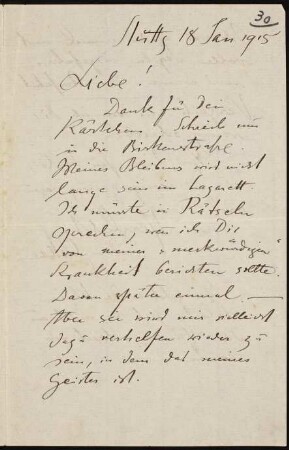 30
Stuttg 18 Jan 1915
Liebe!
Dank für dein
Kärtchen. Schreib nur
in die Birkenstraße.
Meines Bleibens wird nicht
lange sein im Lazarett.
Ich müsste in Rätseln
sprechen, wenn ich Dir
von meiner „merkwürdigen"
Krankheit berichten sollte.
Davon später einmal. —
Aber sie wird mir vielleicht
dazu verhelfen wieder zu
sein, in dem das meines
Geistes ist.